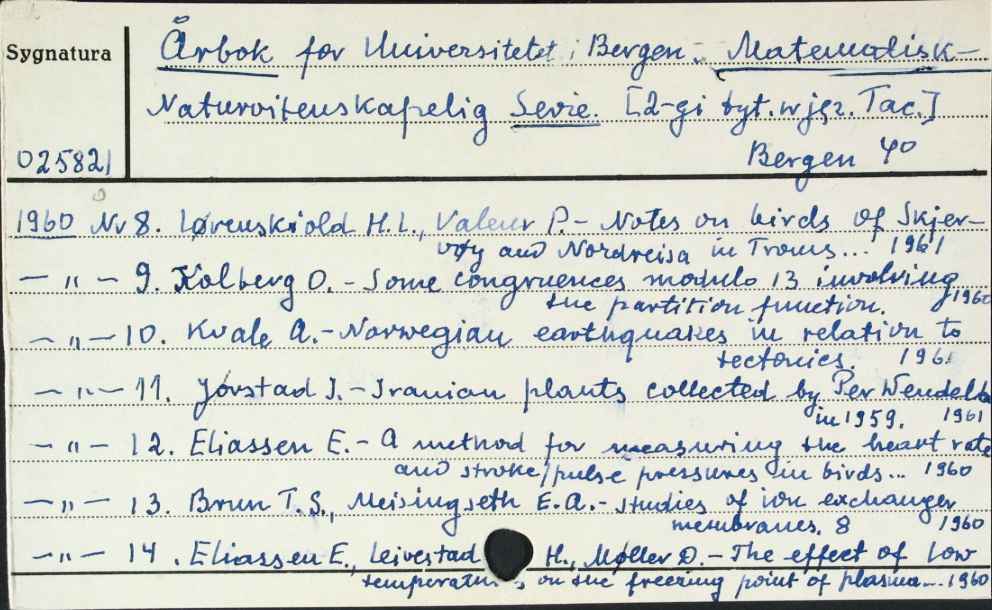 Sygnatura
Årbok for Universitetet i Bergen. Matematisk-
Naturvitenskapelig Serie. [2-gi tyt. w jęz. łac.]
025821
Bergen 4º
1960 Nr 8. Løvenskiold H.L., Valeur P. - Notes on birds of Skjer-
vøy and Nordreisa in Troms... 1961
— „ — 9. Kolberg O. - Some congruences modulo 13 involving
the partition function. 1960
— „ — 10. Kvale A. - Norwegian earthquakes in relation to
tectonics. 196
— „ — 11. Jørstad I. - Iranian plants collected by Per Wendelbo
in 1959. 1961
— „ — 12. Eliassen E. - A method for measuring the heart rate
and stroke/pulse pressures in birds... 1960
— „ — 13. Brun T.S., Meisingseth E.A. - Studies of ion exchanger
membranes. 8 1960
— „ — 14. Eliassen E., Leivestad H., Møller D. - The effect of low
temperatures on the freezing point of plasma... 1960